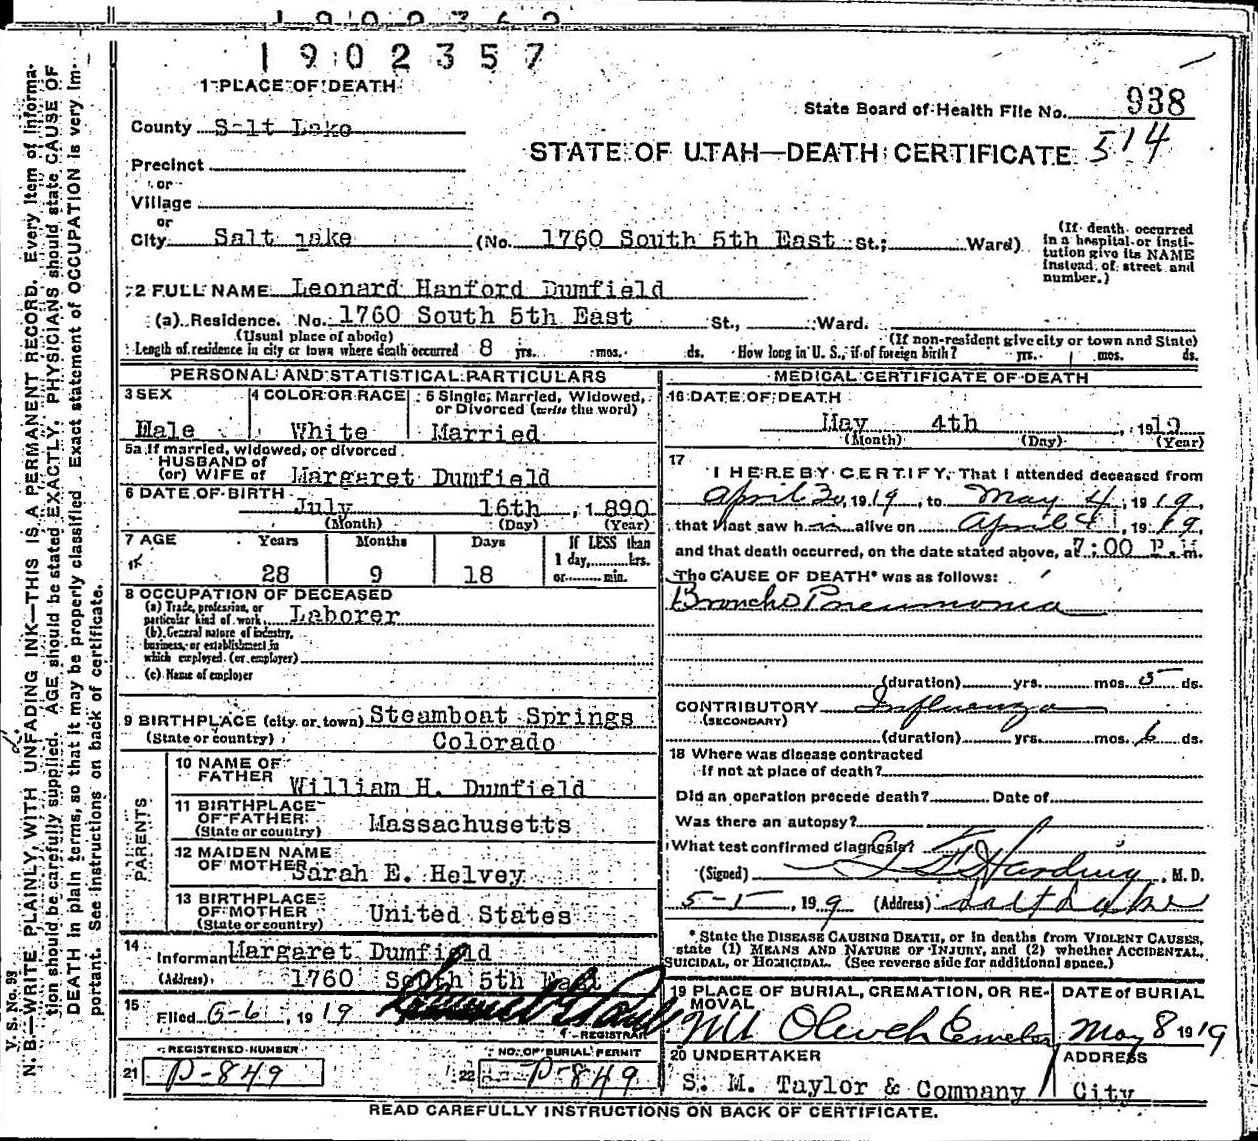 1902357
1 PLACE OF DEATH
State Board of Health File No. 938
County Salt Lake
514
STATE OF UTAH—DEATH CERTIFICATE
Precinct
or
Village
or
City Salt Lake (No. 1760 South 5th East St.; Ward)
(If death occurred in a hospital or institution give its NAME instead of street and number.)
2 FULL NAME Leonard Hanford Dumfield
(a) Residence. No. 1760 South 5th East St., Ward.
(Usual place of abode) (If non-resident give city or town and State)
Length of residence in city or town where death occurred 8 yrs. mos. ds. How long in U. S., if of foreign birth? yrs. mos. ds.
PERSONAL AND STATISTICAL PARTICULARS
3 SEX Male
4 COLOR OR RACE White
5 Single, Married, Widowed, or Divorced (write the word) Married
5a If married, widowed, or divorced
HUSBAND of
(or) WIFE of Margaret Dumfield
6 DATE OF BIRTH July 16th, 1890
(Month) (Day) (Year)
7 AGE Years Months Days If LESS than
1 day, hrs.
or min.
28 9 18
8 OCCUPATION OF DECEASED
(a) Trade, profession, or
particular kind of work, Laborer
(b) General nature of industry,
business, or establishment in
which employed (or employer)
(c) Name of employer
9 BIRTHPLACE (city or town) Steamboat Springs
(State or country) Colorado
PARENTS
10 NAME OF
FATHER William H. Dumfield
11 BIRTHPLACE
OF FATHER Massachusetts
(State or country)
12 MAIDEN NAME
OF MOTHER Sarah E. Helvey
13 BIRTHPLACE
OF MOTHER United States
(State or country)
14
Informant Margaret Dumfield
(Address) 1760 South 5th East
15 Filed 5-6, 1919
REGISTRAR
REGISTERED NUMBER
21 P-849
NO. OF BURIAL PERMIT
22 P-849
MEDICAL CERTIFICATE OF DEATH
16 DATE OF DEATH
May 4th, 1919
(Month) (Day) (Year)
17
I HEREBY CERTIFY, That I attended deceased from
April 30, 1919, to May 4, 1919,
that I last saw him alive on April 4, 1919,
and that death occurred, on the date stated above, at 7:00 P.m.
The CAUSE OF DEATH* was as follows:
Broncho Pneumonia
(duration) yrs. mos. 5 ds.
CONTRIBUTORY Influenza
(SECONDARY)
(duration) yrs. mos. 6 ds.
18 Where was disease contracted
if not at place of death?
Did an operation precede death? Date of
Was there an autopsy?
What test confirmed diagnosis?
(Signed) Harding, M. D.
5-5, 1919 (Address) Salt Lake
* State the DISEASE CAUSING DEATH, or in deaths from VIOLENT CAUSES,
state (1) MEANS AND NATURE OF INJURY, and (2) whether ACCIDENTAL,
SUICIDAL, or HOMICIDAL. (See reverse side for additional space.)
19 PLACE OF BURIAL, CREMATION, OR REMOVAL
Mt Olivet Cemetery
DATE of BURIAL
May 8 1919
20 UNDERTAKER
S. M. Taylor & Company
ADDRESS
City
READ CAREFULLY INSTRUCTIONS ON BACK OF CERTIFICATE.
V. S. No. 99
N. B.—WRITE PLAINLY, WITH UNFADING INK—THIS IS A PERMANENT RECORD. Every item of information
should be carefully supplied. AGE should be stated EXACTLY. PHYSICIANS should state CAUSE OF
DEATH in plain terms, so that it may be properly classified. Exact statement of OCCUPATION is very important.
See instructions on back of certificate.